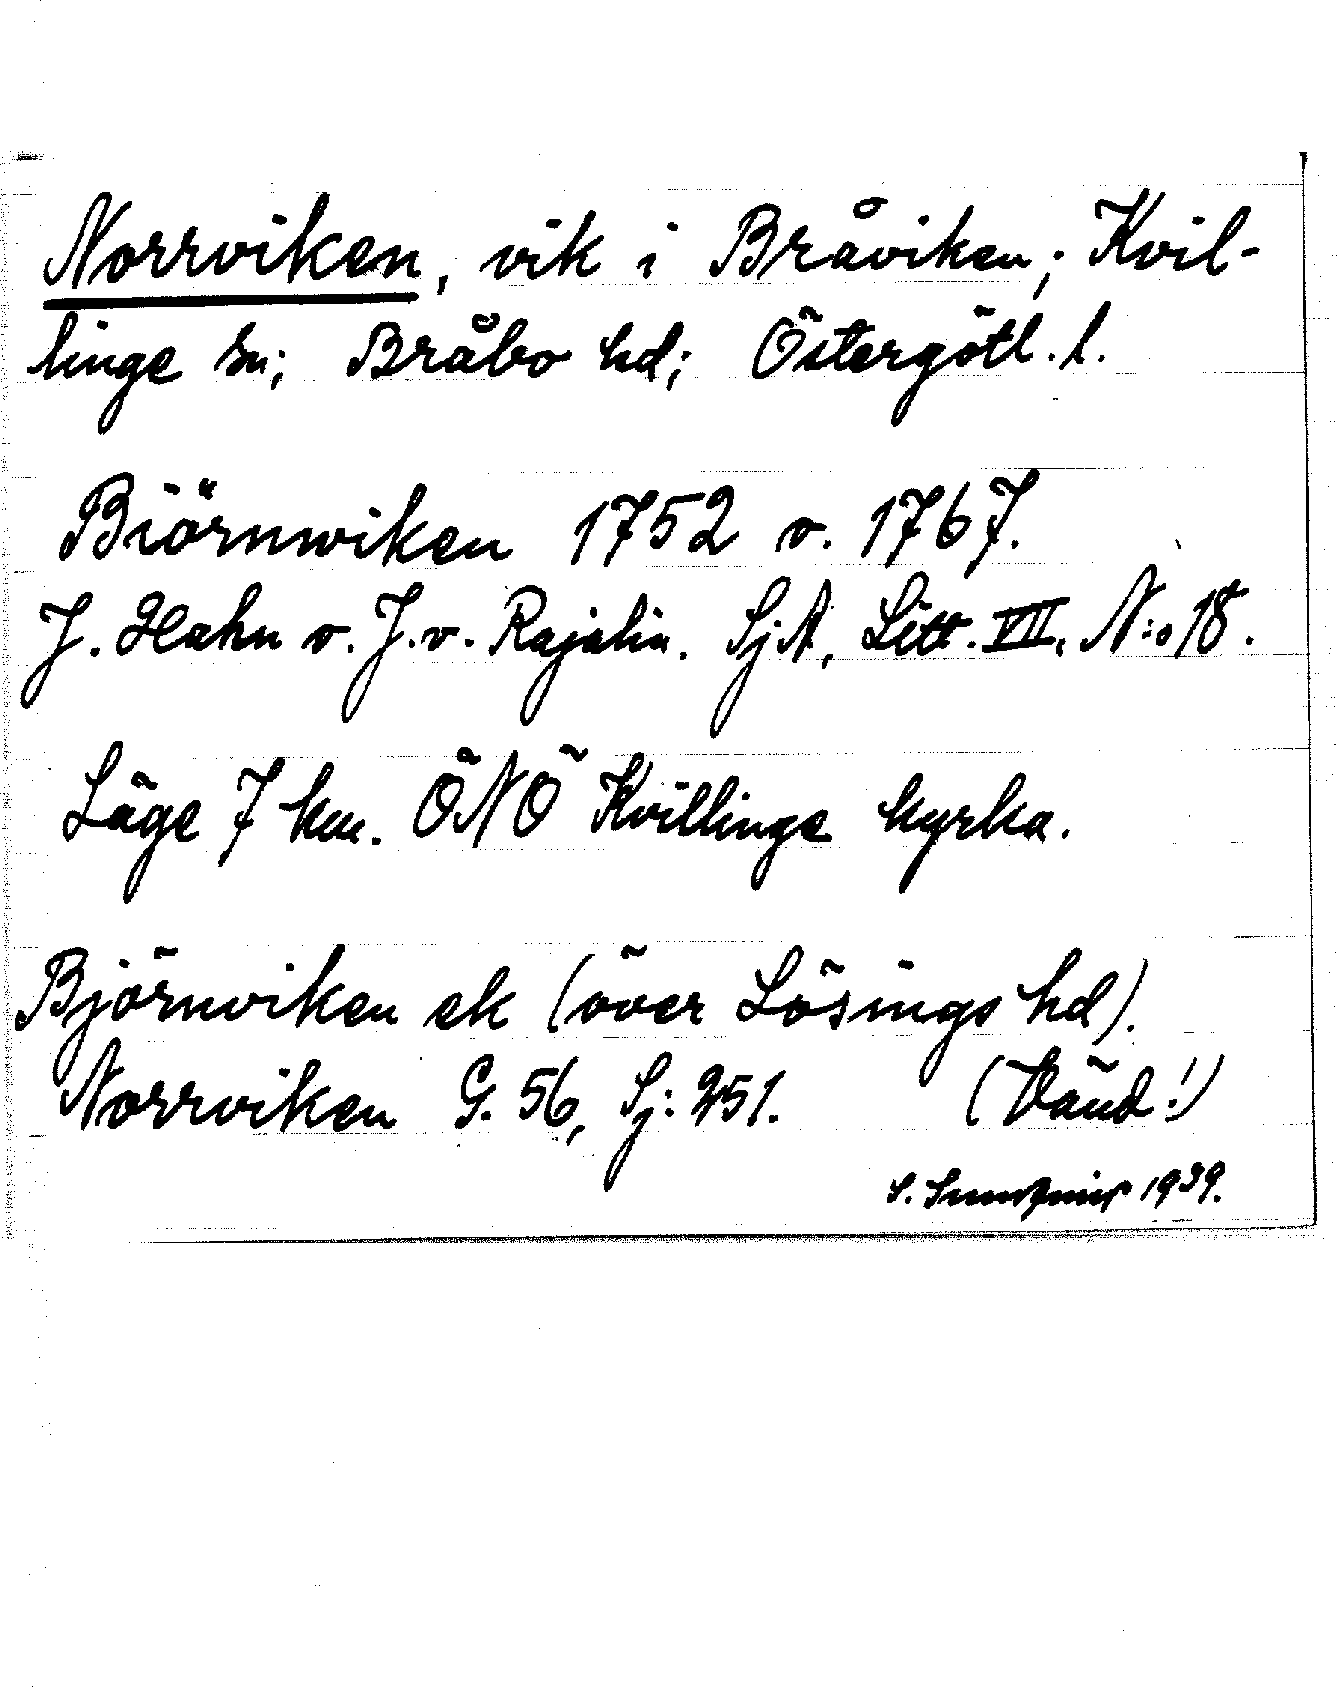 Norrviken, vik i Bråviken; Kvil-
linge sn; Bråbo hd; Östergötl. l.
Biörnwiken 1752 o. 1767.
J. Hahn o. J. v. Rajalin. SjA, Litt. VII, N:o 18.
Läge 7 km. ÖNÖ Kvillinge kyrka.
Björnviken ek (över Lösings hd).
Norrviken G. 56, Sj: 251. (Vänd!)
S. 1939.